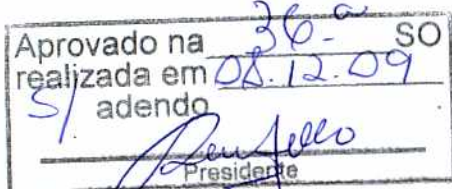 Aprovado na 36.a SO
realizada em 08.12.09
S/ adendo
Presidente